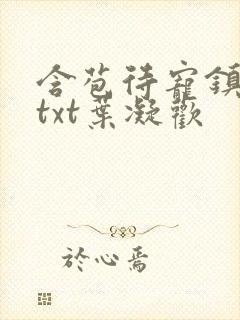 含苞待寵鎮
txt葉凝歡
於心焉